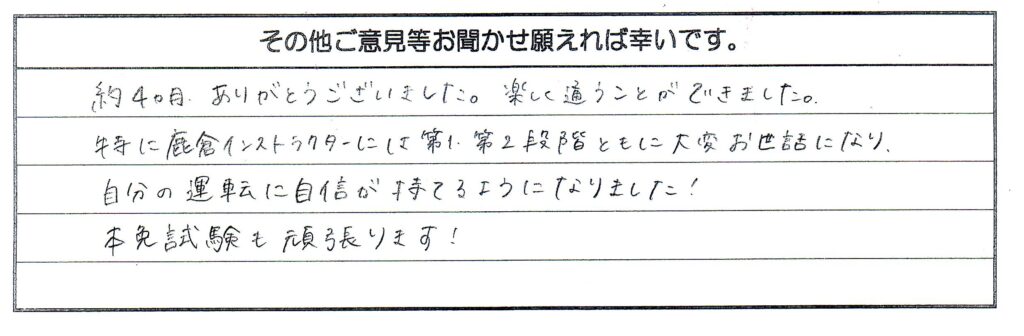 その他ご意見等お聞かせ願えれば幸いです。
約4ヵ月、ありがとうございました。楽しく通うことができました。
特に鹿倉インストラクターには第1、第2段階ともに大変お世話になり、
自分の運転に自信が持てるようになりました！
本免試験も頑張ります！